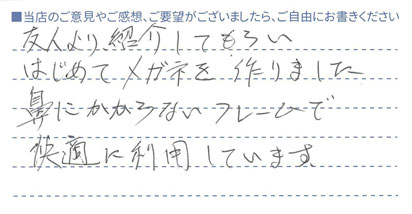 ■当店のご意見やご感想、ご要望がございましたら、ご自由にお書きください
友人より紹介してもらい
はじめてメガネを作りました
鼻にかからないフレームで
快適に利用しています